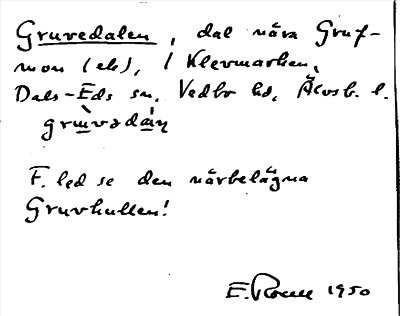 Gruvedalen, dal nära Gruf-
mon (eh), i Klevmarken,
Dals-Eds sn, Vedbo hd, Älvsb. l.
grùvədáṇ
F. led se den närbelägna
Gruvkullen!
E. 1950